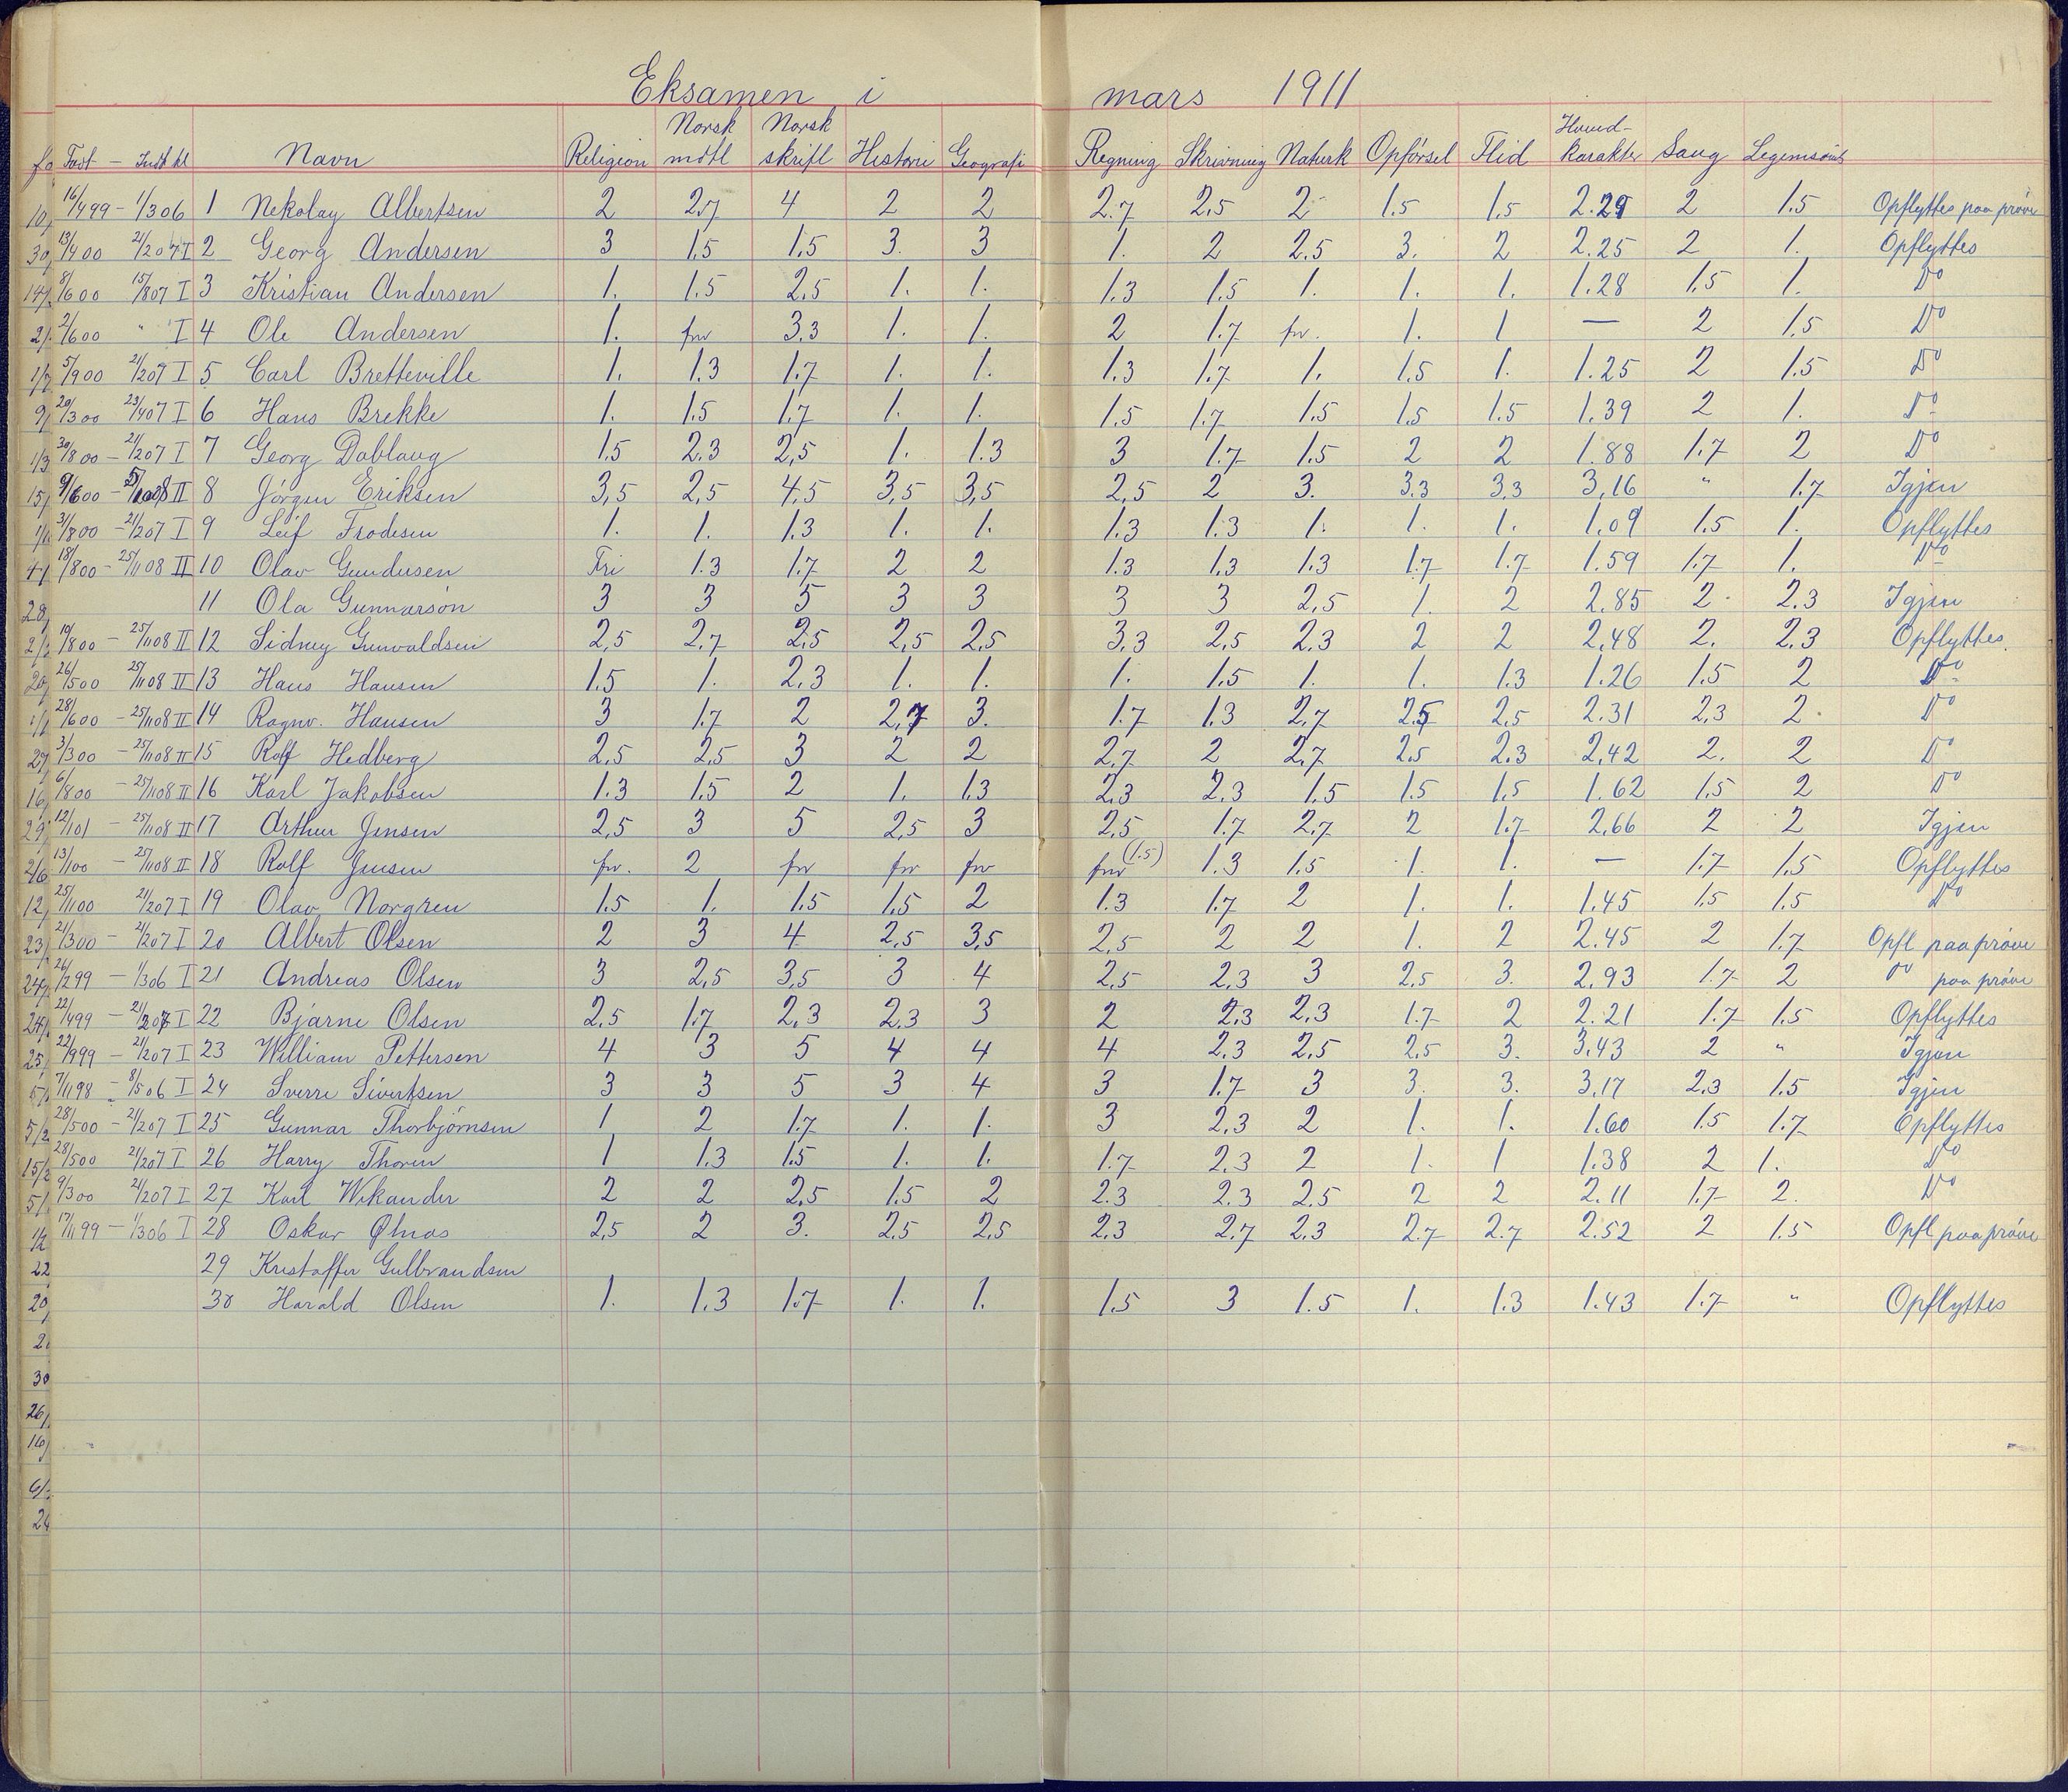 Eksamen i mars 1911
Født – Indt kl Navn Religion Norsk mdtl Norsk skriftl Historie Geografi Regning Skrivning Naturk Opförsel Flid Hoved-karakter Sang Legemsöv
16/4 99 – 1/3 06 1 Nekolay Albertsen 2 2.7 4 2 2 2.7 2.5 2 1.5 1.5 2.29 2 1.5 Opflyttes paa pröve
13/4 00 21/2 07 I 2 Georg Andersen 3 1.5 1.5 3. 3 1. 2 2.5 3. 2 2.25 2 1. Opflyttes
8/6 00 15/8 07 I 3 Kristian Andersen 1. 1.5 2.5 1. 1. 1.3 1.5 1. 1. 1. 1.28 1.5 1. Do
2/6 00 " I 4 Ole Andersen 1. frv 3.3 1. 1. 2 1.7 frv. 1. 1 — 2 1.5 Do
5/9 00 21/2 07 I 5 Carl Bretteville 1. 1.3 1.7 1. 1. 1.3 1.7 1. 1.5 1. 1.25 2 1.5 Do
20/3 00 23/4 07 I 6 Hans Brekke 1. 1.5 1.7 1. 1. 1.5 1.7 1.5 1.5 1.5 1.39 2 1. Do
30/8 00 – 21/2 07 I 7 Georg Dablaug 1.5 2.3 2.5 1. 1.3 3 1.7 1.5 2 2 1.88 1.7 2 Do
9/6 00 – II 8 Jörgen Eriksen 3,5 2,5 4,5 3,5 3,5 2,5 2 3. 3.3 3.3 3,16 " 1.7 Igjen
31/8 00 – 21/2 07 I 9 Leif Frodesen 1. 1. 1.3 1. 1. 1.3 1.3 1. 1. 1. 1.09 1.5 1. Opflyttes
18/8 00 – 25/11 08 II 10 Olav Gundersen Fri 1.3 1.7 2 2 1.3 1.3 1.3 1.7 1.7 1.59 1.7 1. Do
11 Ola Gunnarsön 3 3 5 3 3 3 3 2,5 1. 2 2.85 2 2.3 Igjen
19/8 00 – 25/11 08 II 12 Sidney Gunvaldsen 2,5 2,7 2.5 2,5 2,5 3,3 2,5 2.3 2 2 2,48 2. 2.3 Opflyttes.
26/5 00 25/11 08 II 13 Hans Hansen 1.5 1. 2.3 1. 1. 1. 1.5 1. 1. 1.3 1.26 1.5 2 Do
28/6 00 – 25/11 08 II 14 Ragnv. Hansen 3 1.7 2 2,7 3. 1.7 1.3 2,7 2.5 2,5 2.31 2,3 2 Do
3/3 00 – 25/11 08 II 15 Rolf Hedberg 2,5 2,5 3 2 2 2,7 2 2,7 2.5 2.3 2,42 2. 2 Do
6/8 00 – 25/11 08 II 16 Karl Jakobsen 1.3 1.5 2 1. 1.3 2.3 2.3 1.5 1.5 1.5 1.62 1.5 2 Do
12/1 01 – 25/11 08 II 17 Arthur Jensen 2,5 3 5 2,5 3 2,5 1.7 2.7 2 1.7 2.66 2 2 Igjen
13/1 00 – 25/11 08 II 18 Rolf Jensen frv. 2 frv frv frv frv (1.5) 1.3 1.5 1. 1. — 1.7 1.5 Opflyttes
25/11 00 21/2 07 I 19 Olav Norgren 1.5 1. 1.5 1.5 2 1.3 1.7 2 1. 1. 1.45 1.5 1.5 Do
21/3 00 – 21/2 07 I 20 Albert Olsen 2 3 4 2,5 3,5 2,5 2 2 1. 2 2.45 2 1.7 Opfl paa pröve
26/2 99 – 1/3 06 I 21 Andreas Olsen 3 2,5 3,5 3 4 2,5 2,3 3 2,5 3. 2,93 1.7 2 Do paa pröve
22/4 99 – 21/2 07 I 22 Bjarne Olsen 2,5 1.7 2,3 2.3 3 2 2.3 2.3 1.7 2 2.21 1.7 1.5 Opflyttes
22/9 99 – 21/2 07 I 23 William Pettersen 4 3 5 4 4 4 2.3 2.5 2,5 3. 3.43 2 " Igjen
7/11 98 – 8/5 06 I 24 Sverre Sivertsen 3 3 5 3 4 3 1.7 3 3. 3. 3,17 2.3 1.5 Igjen
28/5 00 – 21/2 07 I 25 Gunnar Thorbjörnsen 1 2 1.7 1. 1. 3 2.3 2 1. 1. 1.60 1.5 1.7 Opflyttes
28/5 00 21/2 07 I 26 Harry Thoren 1 1.3 1.5 1. 1. 1.7 2.3 2 1. 1 1.38 2 1. Do
9/3 00 21/2 07 I 27 Karl Wikander 2 2 2,5 1.5 2 2.3 2.3 2.5 2 2 2.11 1.7 2. Do
17/11 99 – 1/3 06 I 28 Oskar Ølnas 2,5 2 3. 2.5 2.5 2.3 2.7 2.3 2.7 2.7 2.52 2 1.5 Opfl paa pröve
29 Kristoffer Gulbrandsen
30 Harald Olsen 1. 1.3 1.7 1. 1. 1.5 3 1.5 1. 1.3 1.43 1.7 " Opflyttes